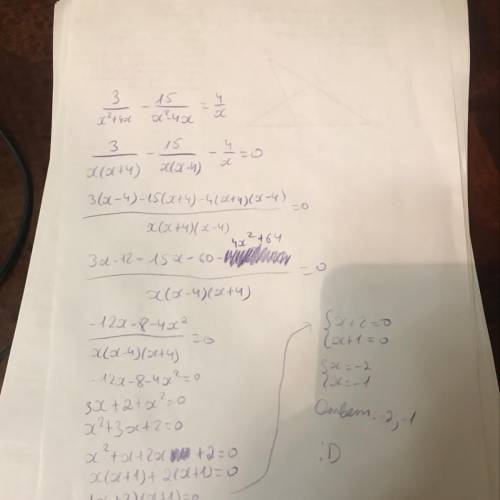 3/(x²+4x) - 15/(x²-4x) = 4/x
3/(x(x+4)) - 15/(x(x-4)) - 4/x = 0
(3(x-4)-15(x+4)-4(x+4)(x-4))/(x(x+4)(x-4)) = 0
(3x-12-15x-60-4x²+64)/(x(x-4)(x+4)) = 0
(-12x-8-4x²)/(x(x-4)(x+4)) = 0
-12x-8-4x²=0
3x+2+x²=0
x²+3x+2=0
x²+x+2x+2=0
x(x+1)+2(x+1)=0
(x+2)(x+1)=0
{x+2=0
{x+1=0
{x=-2
{x=-1
Ответ: -2, -1
:D